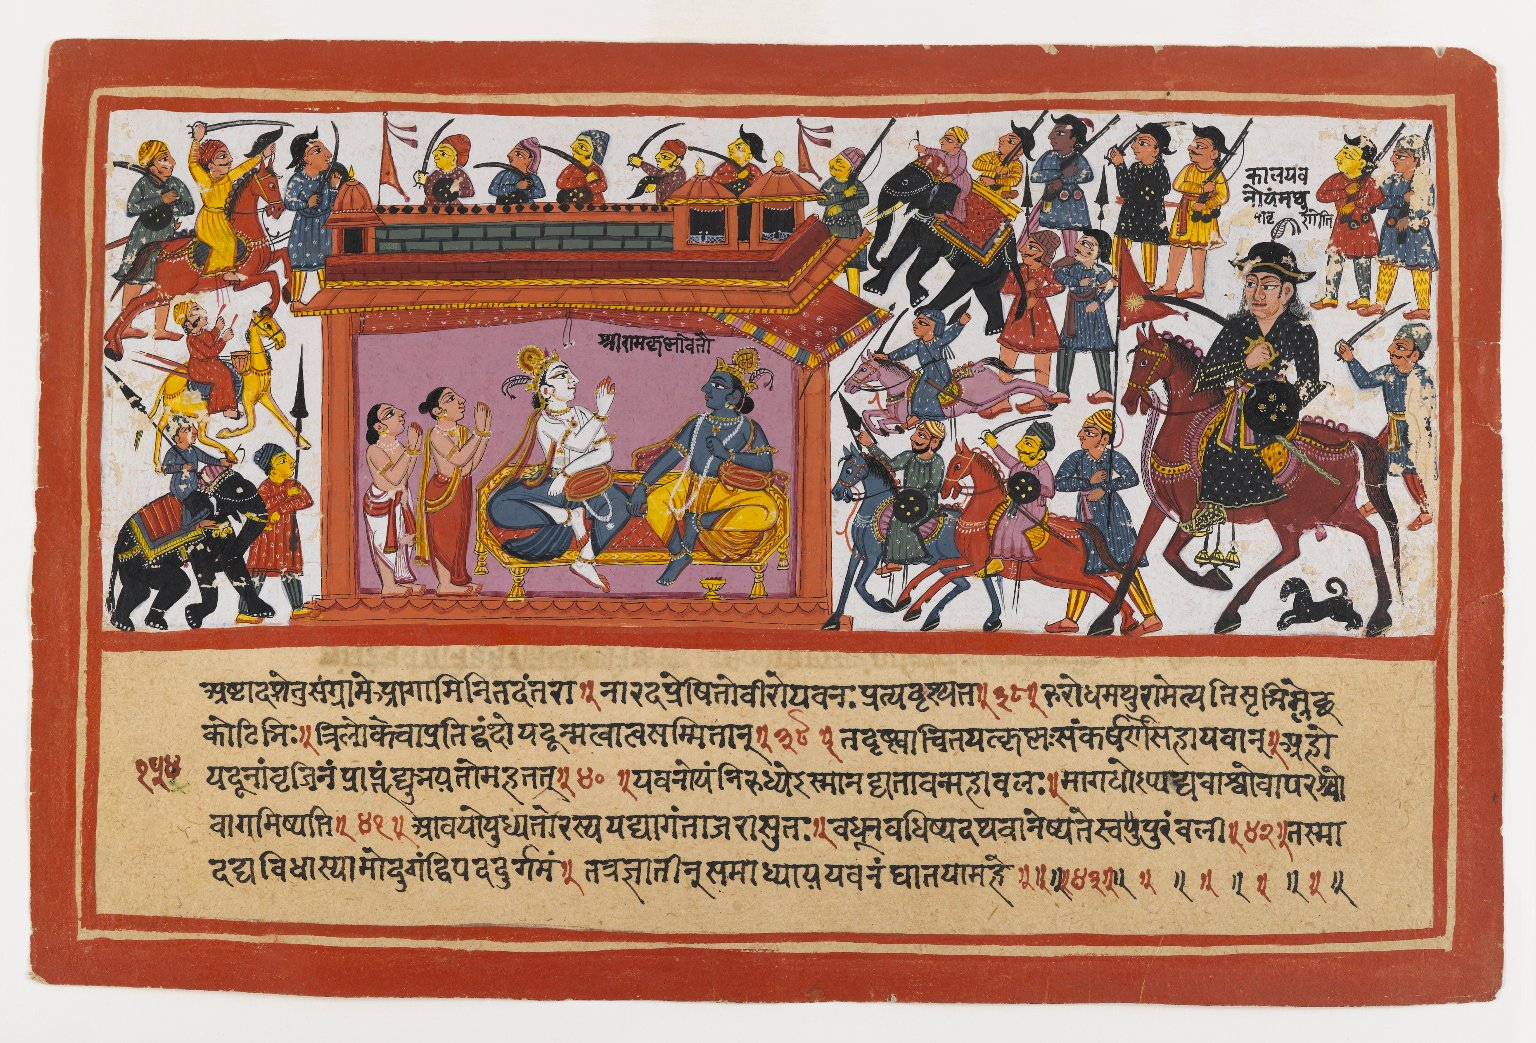 कालयव
नोयंमथु
श्रीरामकृष्णौवतौ
अष्टादशेतुसंग्रामेआगामिनितदंतरा॥नारदप्रेषितोवीरोयवनःप्रत्यदृश्यत॥३८॥रुरोधमथुरामेत्यतिसृभिर्म्लेछ
कोटिभिः॥त्रिलोकेचाप्रतिद्वंदोयदून्मत्वात्मसम्मितान्॥३९॥तंदृष्ट्वाचिंतयत्कृष्णःसंकर्षणसहायवान्॥अहो
१५४
यदूनांवृजिनंप्राप्तंह्युभयतोमहत्॥४०॥यवनोयंनिरुध्येऽस्मानद्यतावन्महाबलः॥मागधोऽप्यद्यवाश्वोवापरश्वो
वागमिष्यति॥४१॥आवयोयुध्यतोरस्ययद्यागंताजरासुतः॥बधून्वधिष्यदथवानेष्यतेस्वपुरंबली॥४२॥तस्मा
दद्यविधास्यामोदुर्गंद्विपददुर्गमं॥तत्रज्ञातीन्समाध्याययवनंघातयामहे॥॥॥४३॥॥॥॥॥॥॥॥॥